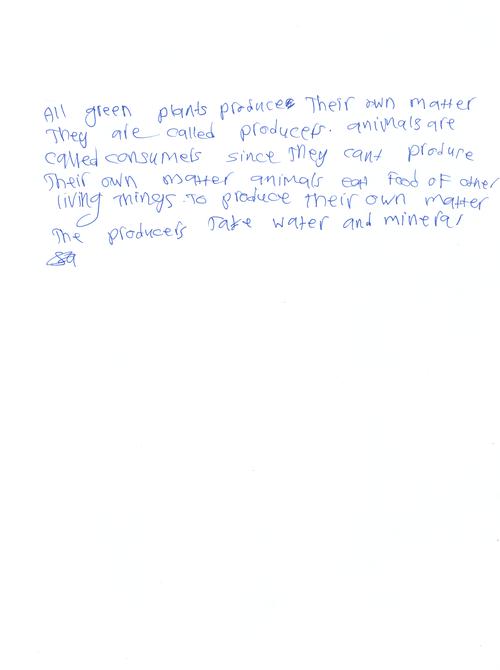 All green plants produce Their own matter
They are called producers. animals are
called consumers since They cant produre
Their own matter animals eat food of other
living Things. To produce Their own matter
The producers Take water and mineral